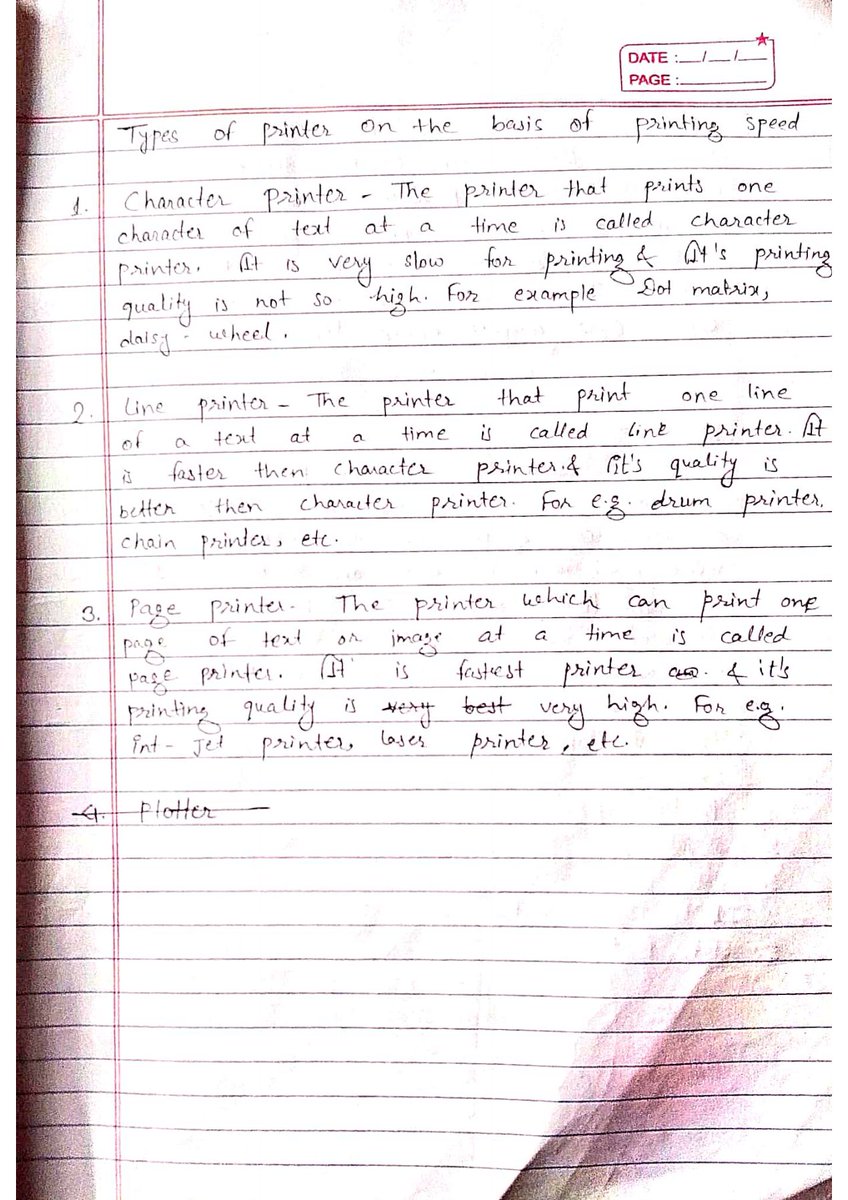 DATE :__/__/__
PAGE :________
Types of printer on the basis of printing speed
1. Character printer - The printer that prints one
character of text at a time is called character
printer. It is very slow for printing & It's printing
quality is not so high. For example Dot matrix,
daisy - wheel.
2. Line printer - The printer that print one line
of a text at a time is called line printer. It
is faster then character printer. & it's quality is
better then character printer. For e.g. drum printer,
chain printer, etc.
3. Page printer - The printer which can print one
page of text or image at a time is called
page printer. It is fastest printer & it's
printing quality is very best very high. For e.g.
int - jet printer, laser printer, etc.
4. Plotter